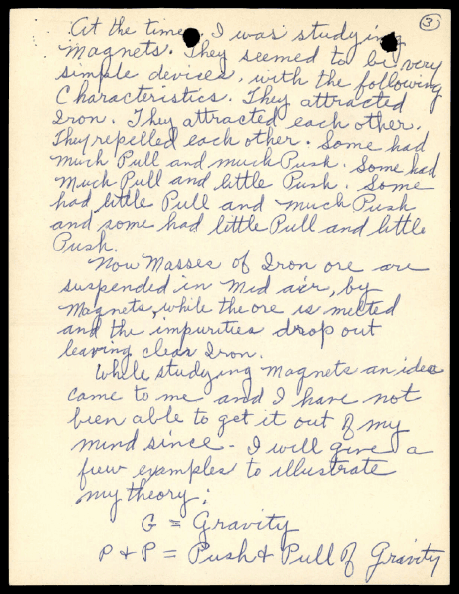 3
At the time, I was studying
Magnets. They seemed to be very
simple devices, with the following
Characteristics. They attracted
Iron. They attracted each other.
They repelled each other. Some had
Much Pull and much Push. Some had
Much Pull and little Push. Some
had little Pull and much Push
and some had little Pull and little
Push.
Now Masses of Iron ore are
suspended in Mid air, by
Magnets, while the ore is melted
and the impurities drop out
leaving clear Iron.
While studying magnets an idea
came to me and I have not
been able to get it out of my
mind since - I will give a
few examples to illustrate
my theory:
G = Gravity
P + P = Push & Pull of Gravity